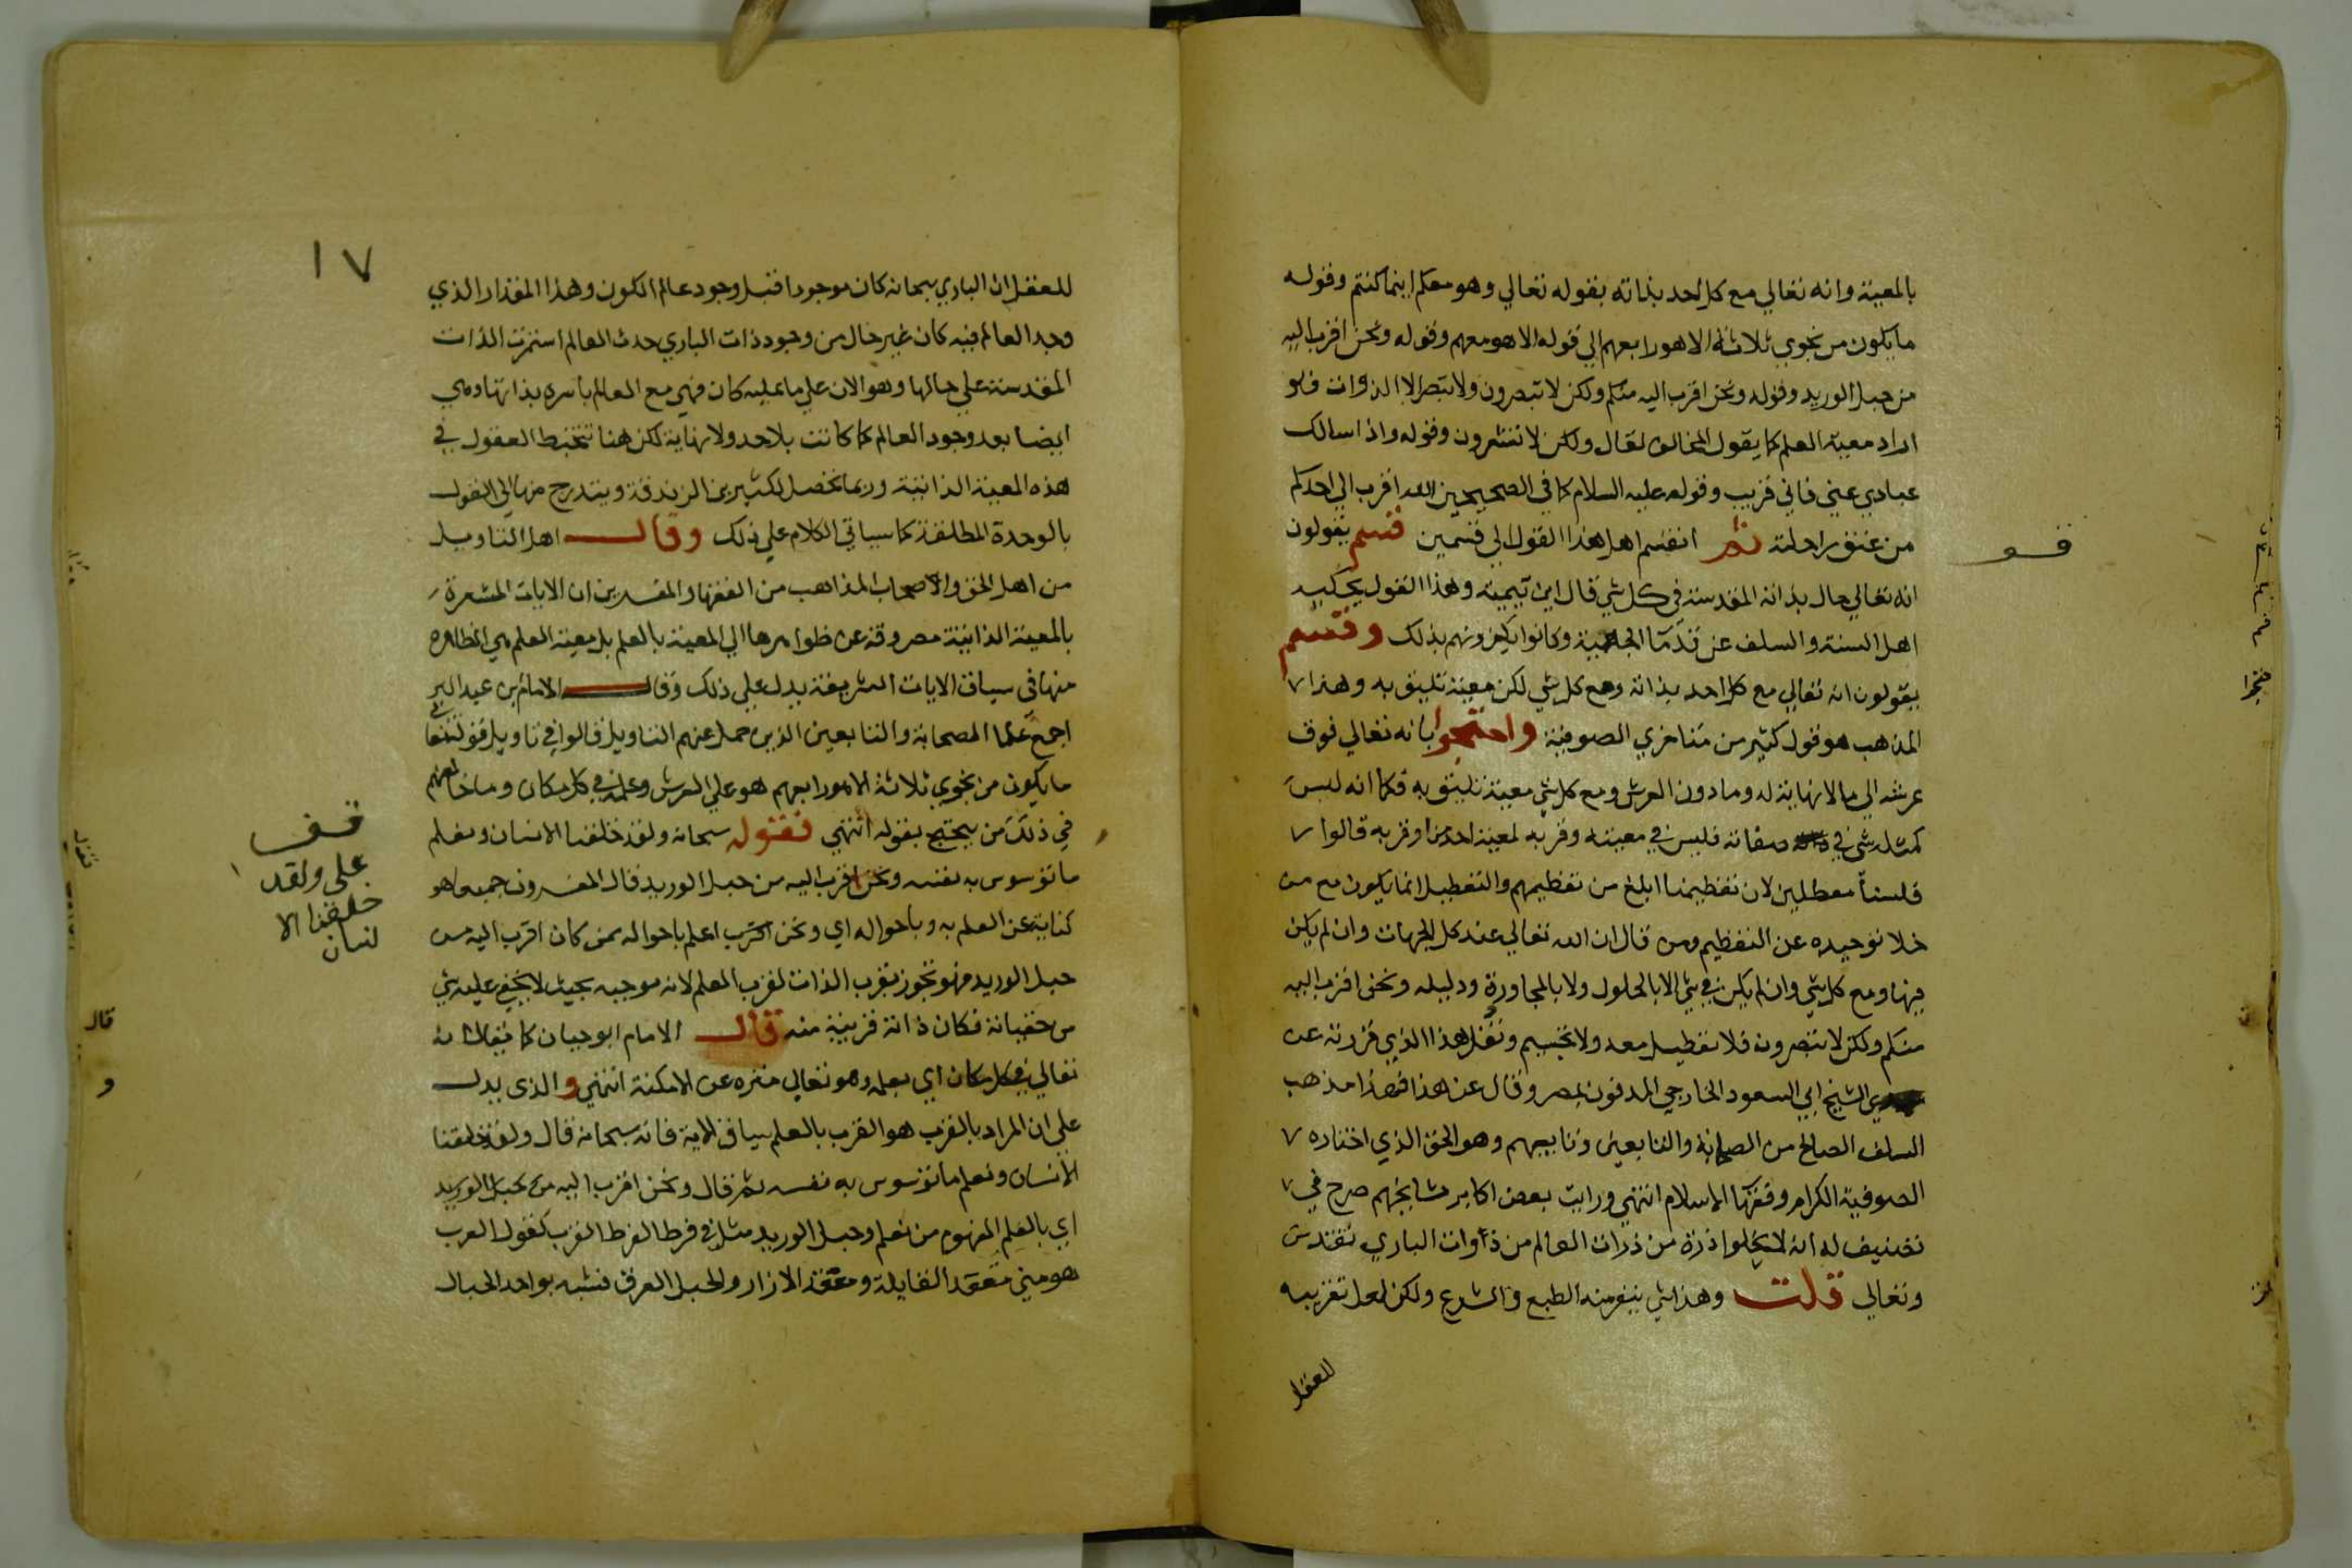 بالمعية وانه تعالي مع كل احد بذاته بقوله تعالي وهو معكم اينما كنتم وقوله
ما يكون من نجوي ثلاثة الا هو رابعهم الي قوله الا هو معهم وقوله ونحن اقرب اليه
من حبل الوريد وقوله ونحن اقرب اليه منكم ولكن لا تبصرون ولا يتصر الا الذوات فلو
اراد معية العلم كما يقول المخالف لقال ولكن لا تشعرون وقوله واذا سالك
عبادي عني فاني قريب وقوله عليه السلام كما في الصحيحين الله اقرب الي احدكم
من عنق راحلته ثم انقسم اهل هذا القول الي قسمين قسم يقولون
قف
انه تعالي حال بذاته المقدسة في كل شي قال ابن تيمية وهذا القول يحكيه
اهل السنة والسلف عن قدما الجهمية وكانوا يكفرونهم بذلك وقسم
يقولون انه تعالي مع كل احد بذاته ومع كل شي لكن معية تليق به وهذا
المذهب هو قول كثير من متاخري الصوفية واحتجوا بانه تعالي فوق
عرشه الي ما لا نهاية له وما دون العرش ومع كل شي معية تليق به فكما انه ليس
كمثله شي في صفاته فليس في معيته وقربه لمعية احدنا وقربه قالوا
فلسنا معطلين لان تعظيمنا ابلغ من تعظيمهم والتعطيل انما يكون مع من
خلا توحيده عن التعظيم ومن قال ان الله تعالي عند كل الجهات وان لم يكن
فيها ومع كل شي وان لم يكن في شي الا بالحلول ولا بالمجاورة ودليله ونحن اقرب اليه
منكم ولكن لا تبصرون فلا تعطيل معه ولا تجسيم ونقل هذا الذي قررته عن
الشيخ ابي السعود الخارجي المدفون بمصر وقال عن هذا فهذا مذهب
السلف الصالح من الصحابة والتابعين وتابعيهم وهو الحق الذي اختاره
الصوفية الكرام وفقها الاسلام انتهي ورايت بعض اكابر مشايخهم صرح في
تصنيف له انه لا يخلوا ذرة من ذرات العالم من ذاوات الباري تقدس
وتعالي قلت وهذا شي ينفر منه الطبع والشرع ولكن لعل تقريبه
للعقل
١٧
للعقل ان الباري سبحانه كان موجودا قبل وجود عالم الكون وهذا المقدار الذي
وجد العالم فيه كان غير خال من وجود ذات الباري حدث العالم استمرت الذات
المقدسة علي حالها وهو الان علي ما عليه كان فهي مع العالم باسره بذاتها وهي
ايضا بعد وجود العالم كما كانت بلا حد ولا نهاية لكن هنا تتخبط العقول في
هذه المعية الذاتية وربما تحصل لكثير من الزندقة ويتدرج منها الي القول
بالوحدة المطلقة كما سياتي الكلام علي ذلك وقال اهل التاويل
من اهل الحق والاصحاب المذاهب من الفقها والمفسرين ان الايات المشعرة
بالمعية الذاتية مصروفة عن ظواهرها الي المعية بالعلم بل معية العلم هي الظاهرة
منها في سياق الايات الشريفة يدل علي ذلك وقال الامام بن عبد البر
اجمع علما الصحابة والتابعين الذين حمل عنهم التاويل قالوا في تاويل قوله تعالي
ما يكون من نجوي ثلاثة الا هو رابعهم هو علي العرش وعلمه في كل مكان وما خالفهم
في ذلك من يحتج بقوله انتهي فقوله سبحانه ولقد خلقنا الانسان ونعلم
ما توسوس به نفسه ونحن اقرب اليه من حبل الوريد قال المفسرون جميعا هو
كناية عن العلم به وباحواله اي ونحن اقرب اعلم باحواله ممن كان اقرب اليه من
حبل الوريد فهو تجوز بقرب الذات لقرب العلم لانه موجبه بحيث لا يخفي عليه شي
من خفياته فكان ذاته قريبة منه قال الامام ابو حيان كما يقال انه
تعالي في كل مكان اي بعلمه وهو تعالي منزه عن الامكنة انتهي والذي يدل
علي ان المراد بالقرب هو القرب بالعلم سياق الاية فانه سبحانه قال ولقد خلقنا
الانسان ونعلم ما توسوس به نفسه ثم قال ونحن اقرب اليه من حبل الوريد
اي بالعلم المفهوم من نعلم وحبل الوريد مثل في فرط القرب كقول العرب
هو مني مقعد القابلة ومعقد الازار والحبل العرق فشبه بواحد الحبال
قف
علي ولقد
خلقنا الا
نسان